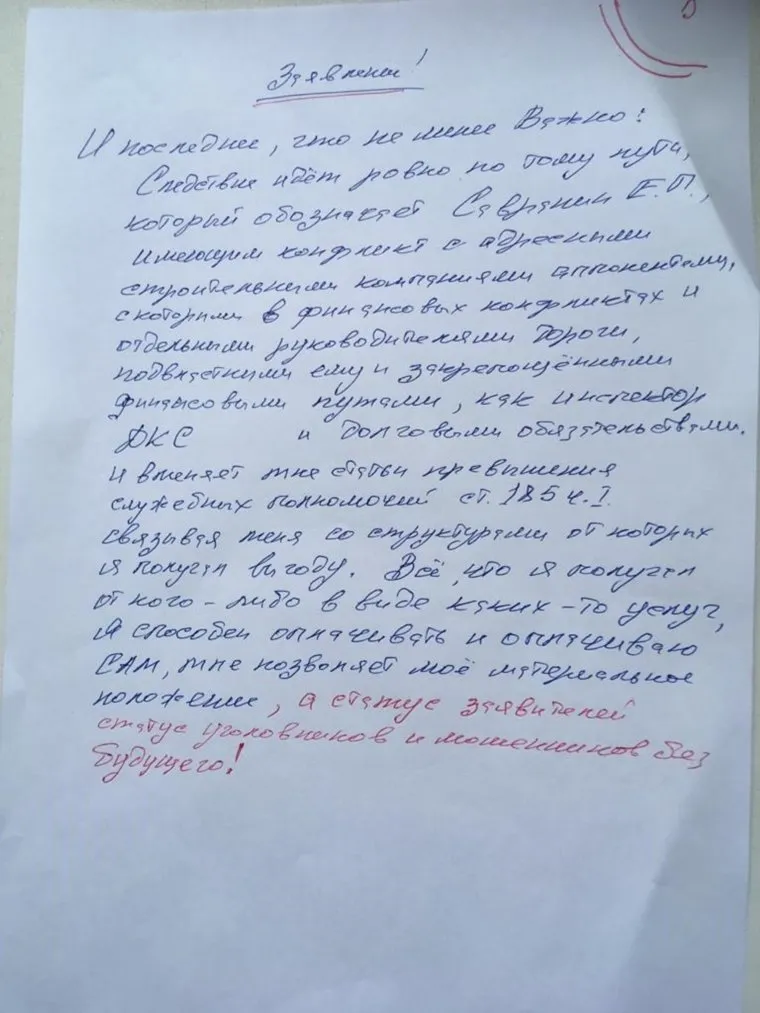 Заявление!
И последнее, что не менее Важно:
Следствие идёт ровно по тому пути,
который обозначает Саврянин Е.П.,
имеющим конфликт с адресными
строительными компаниями оппонентами,
с которыми в финансовых конфликтах и
отдельными руководителями дороги,
подвластными ему и закрепощёнными
финансовыми путами, как инспектор
ДКС и долговыми обязательствами.
И вменяет мне статьи превышения
служебных полномочий ст. 285 ч. I.
связывая меня со структурами от которых
я получал выгоду. Всё, что я получал
от кого-либо в виде каких-то услуг,
я способен оплачивать и оплачиваю
САМ, мне позволяет моё материальное
положение, а статус заявителей
статус уголовников и мошенников без
будущего!